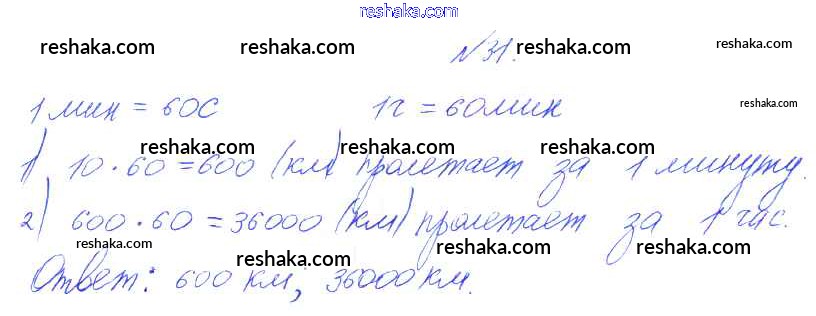 www.reshaka.com
reshaka.com reshaka.com reshaka.com reshaka.com
№31.
1 мин = 60с 1ч = 60мин
reshaka.com
reshaka.com reshaka.com reshaka.com
1) 10·60=600 (км) пролетает за 1 минуту.
reshaka.com reshaka.com reshaka.com
2) 600·60=36000 (км) пролетает за 1 час.
reshaka.com reshaka.com reshaka.com
Ответ: 600 км; 36000 км.